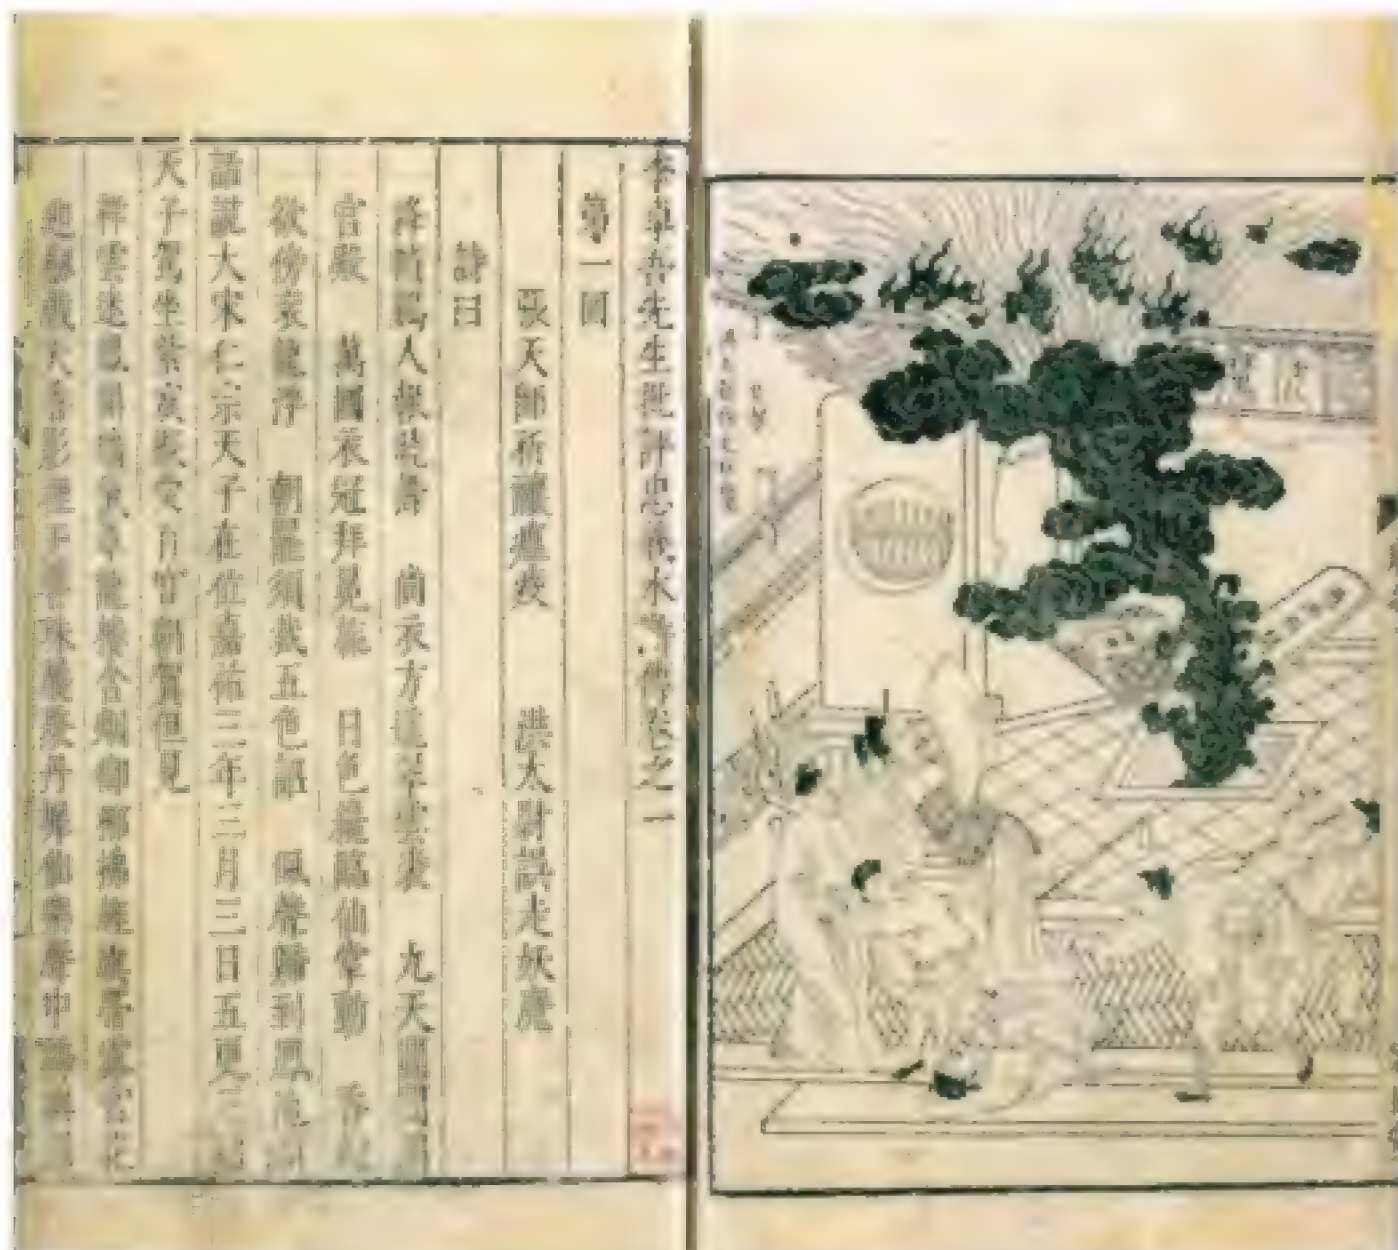 李卓吾先生批評忠義水滸傳卷之一
第一回
張天師祈禳瘟疫 洪太尉誤走妖魔
詩曰
絳幘雞人報曉籌 尚衣方進翠雲裘 九天閶闔
宮殿 萬國衣冠拜冕旒 日色纔臨仙掌動 香
欲傍袞龍浮 朝罷須裁五色詔 佩聲歸到鳳池
話說大宋仁宗天子在位嘉祐三年三月三日五更三
天子駕坐紫宸殿受百官朝賀但見
祥雲迷鳳閣瑞氣罩龍樓含烟御柳拂旌旗帶露宮花
迎劍戟天香影裡玉簪珠履聚丹墀仙樂聲中繡